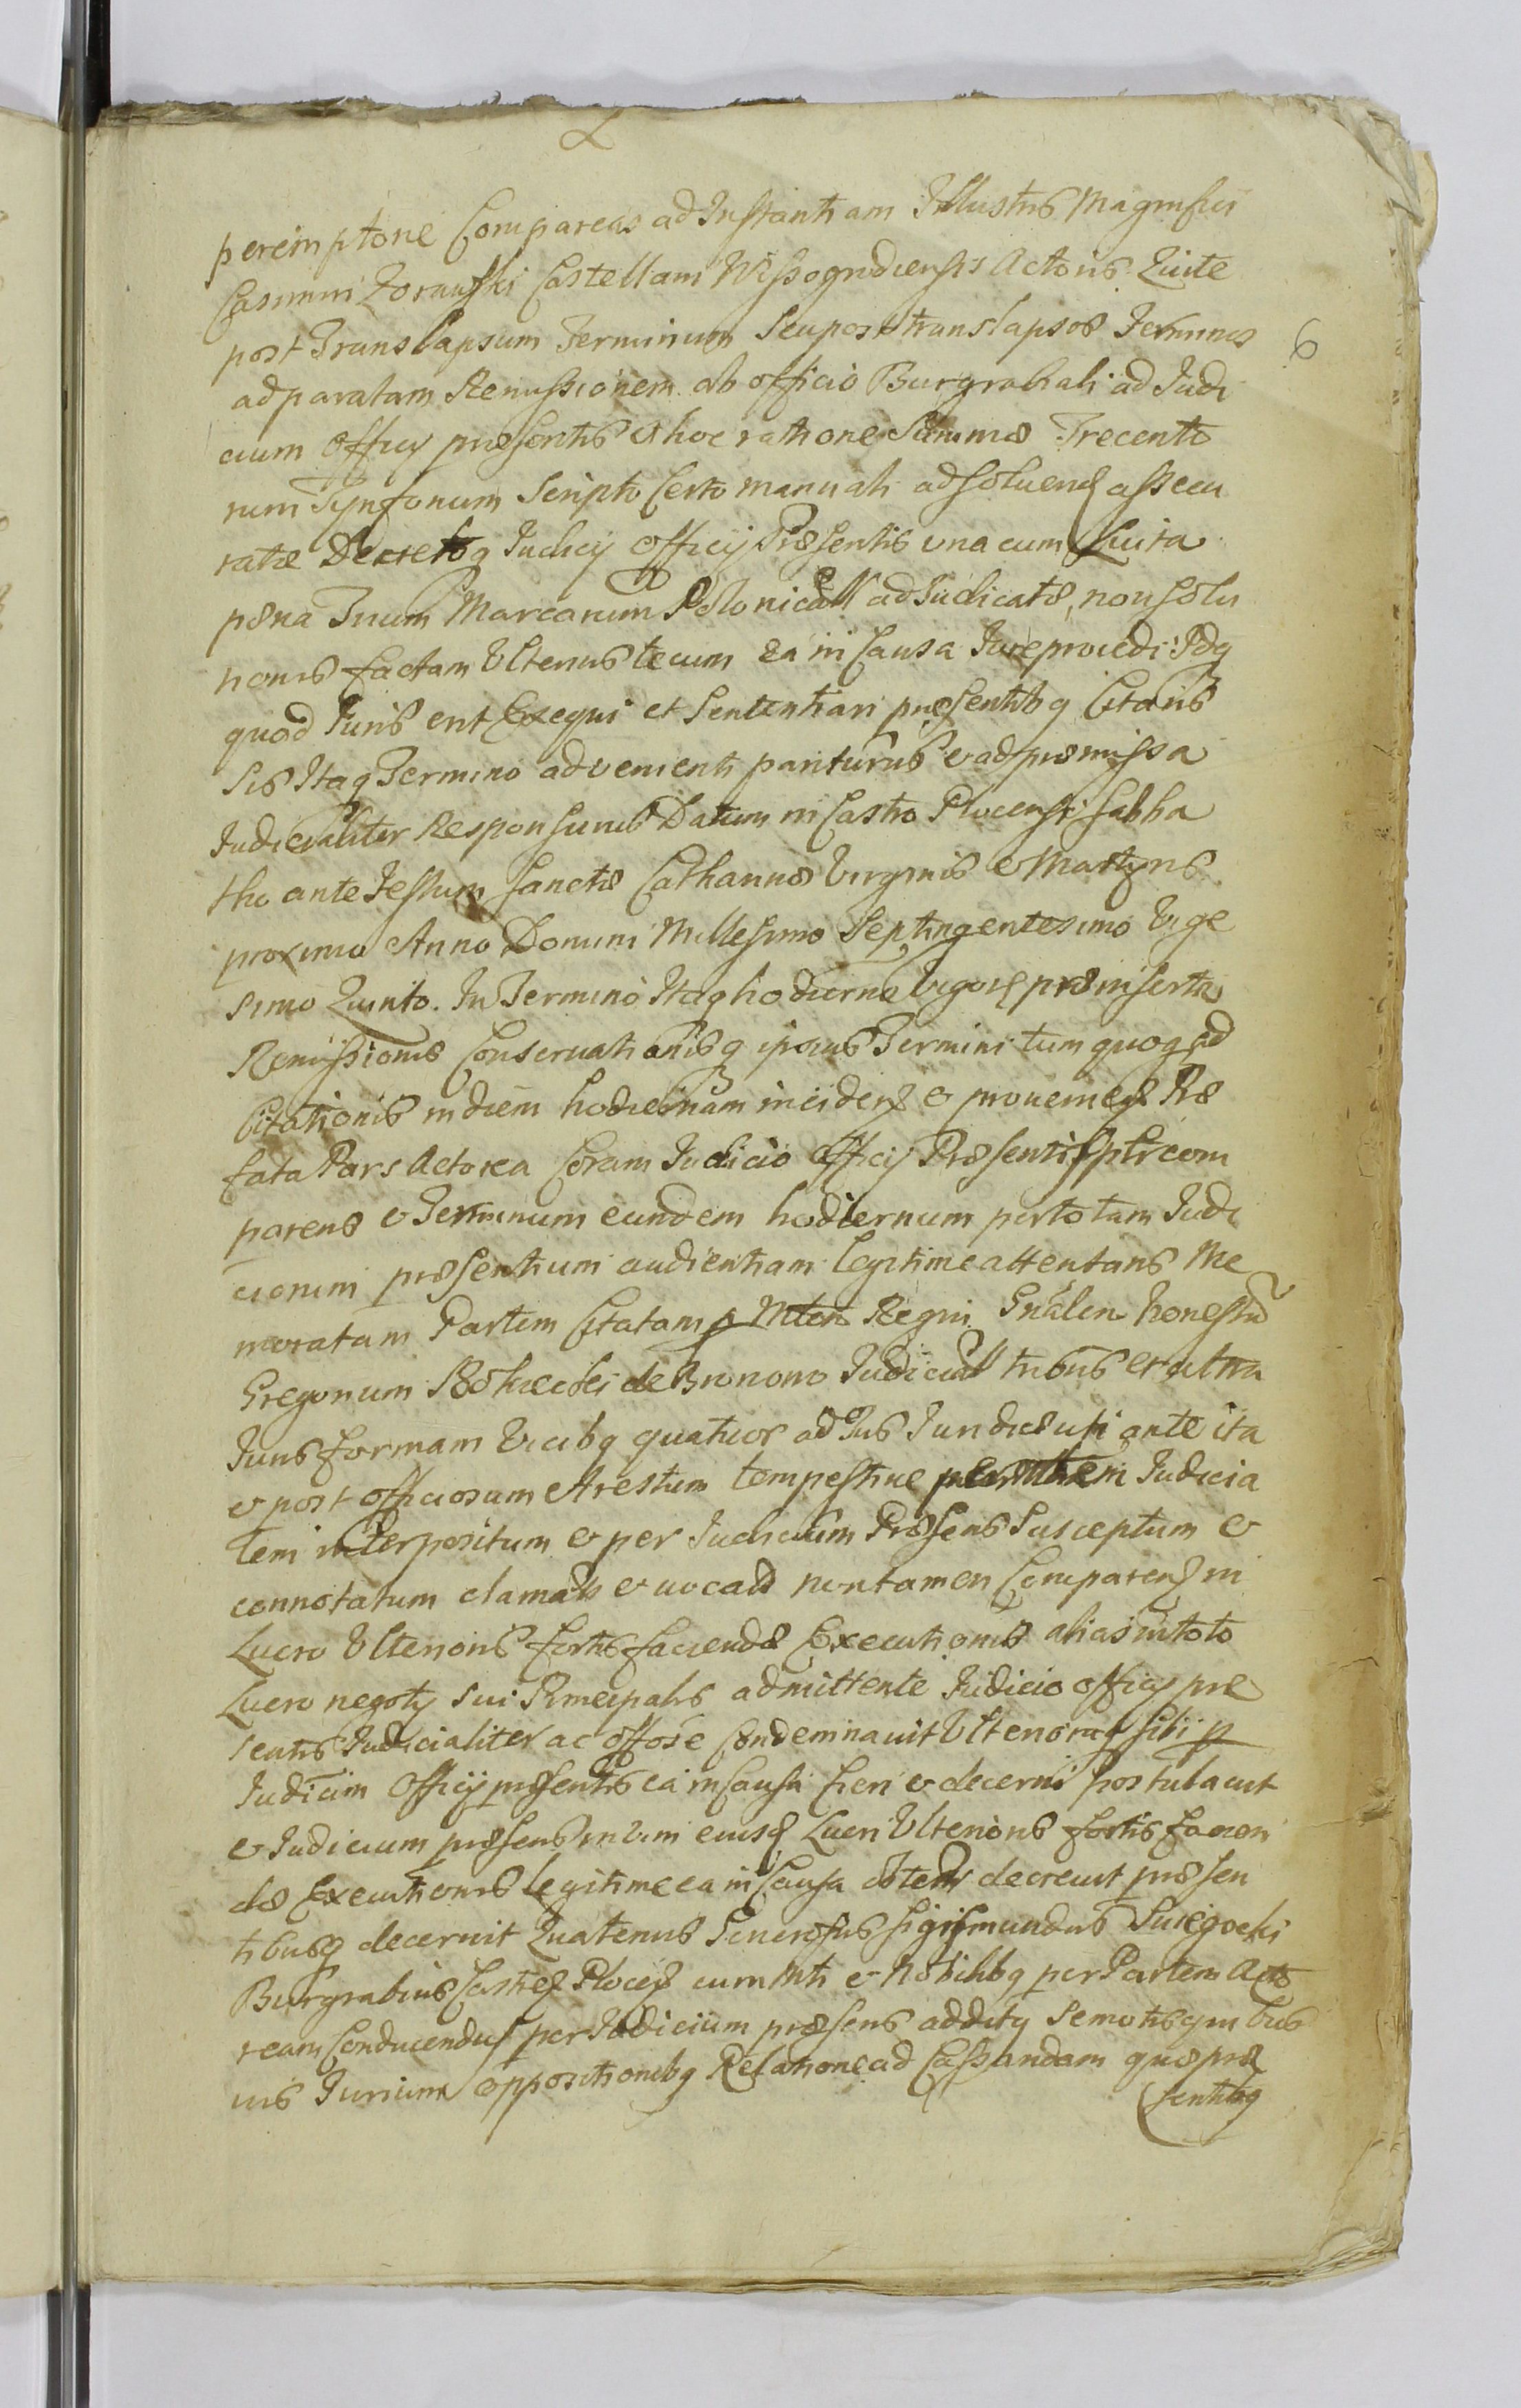 peremptorie Compareas ad Instantiam Illustris Magnifici
Casimiri Zorawski Castellani Wissogrodiensis Actoris Qui te
post Translapsum Terminum seu post translapsos Terminos
6
ad paratam Remissionem ab officio Burgrabiali ad Judi
cium Officij præsentis ex hoc ratione Summæ Trecento
rum Tynfonum Scripto Certo manuali ad solvend assecu
ratæ Decretoq Judicij Officij Præsentis una cum Luita
pæna Trium Marcarum Polonicall adjudicatæ, non solu
tionis factam Ulterius tecum ea in Causa Jure procedi Idq
quod Juris erit Exequi et Sententiari præsentibq Citaris
Sis Itaq Termino advenienti pariturus & ad præmissa
Judicialiter Responsurus Datum in Castro Plocensi Sabba
tho ante Festum Sanctæ Catharinæ Virginis & Martyris
proximo Anno Domini Millesimo Septingentesimo Vige
simo Quinto. In Termino Itaq hodierno Vigore præinsertæ
Remissionis Conservationisq ipsius Termini tum quoq ad
Citationis in diem hodiernam inciden & provenien Præ
fata Pars Actorea Coram Judicio Officij Præsenti Spltr com
parens & Terminum eundem hodiernum per totam Judi
ciorum præsentium audientiam legitime attentans Me
moratam Partem Citatam p Mtem Regni Gnalem honestum
Gregorium de Judiciall tribus et ultra
Juris formam Vicibq quatuor ad Jus Juridice uti ante ita
& post officiosum Arestum tempestive Judicia
lem interpositum & per Judicium Præsens Susceptum &
connotatum clamatt & vocatt non tamen Comparen in
Lucro Ulterioris fortis faciendæ Executionis alias in toto
Lucro negotij sui Principalis admittente Judicio officij præ
sentis Judicialiter ac offose Condemnavit Ulterioraq sibi p
Judicium Officij præsentis ea in Causa fieri & decerni postulavit
& Judicium præsens in vim eiusd Lucri Ulterioris fortis facien
dæ Executionis legitime ea in Causa obtenti decrevit præsen
tibusq decernit Quatenus Generosus Sigismundus
Burgrabius Castren Plocen cum Mti & Nobilibq per Partem Acto
ream Conducendus per Judicium præsens additq Semotis quibus
vis Jurium oppositionibq Relatione ad Cassandam quæ præ
sentibq